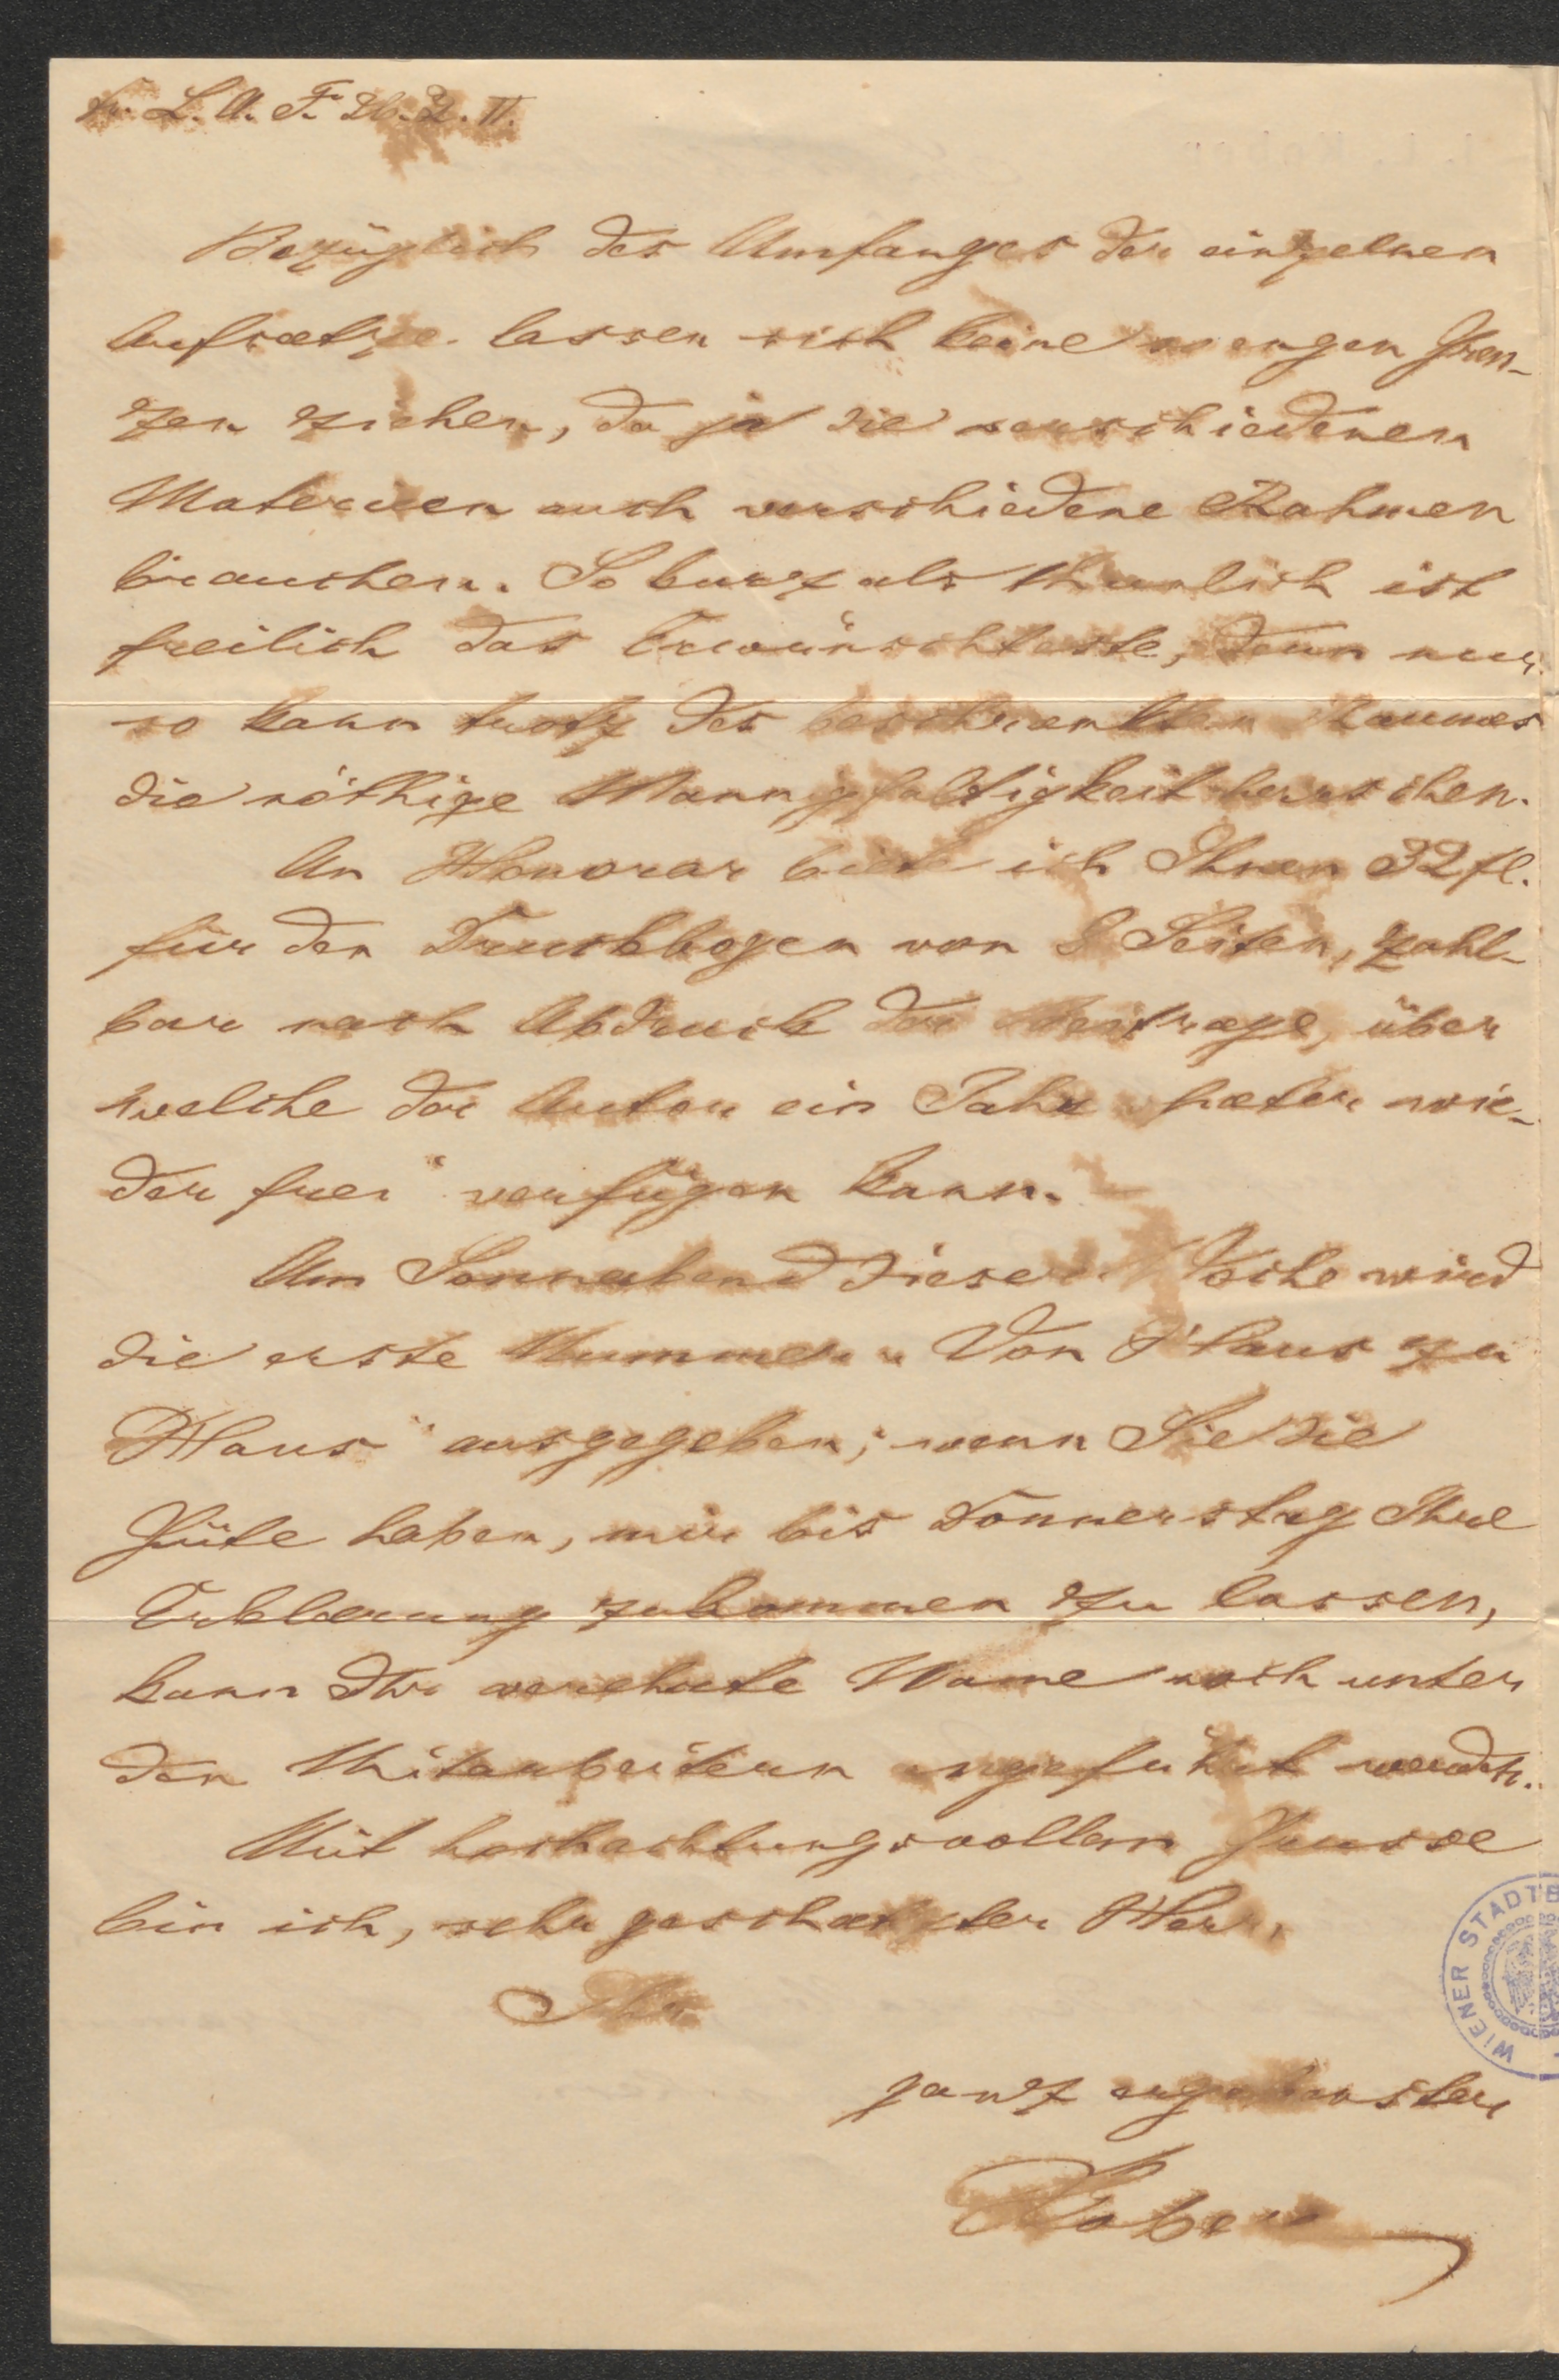 Hr. L. A. F. II.
Bezüglich des Umfanges der einzelnen
Aufsaetze lassen sich keine so engen Gren-
zen ziehen, da ja die verschiedenen
Materien auch verschiedene Rahmen
brauchen. So kurz als thunlich ist
freilich das Erwünschteste, denn nur
so kann trotz des beschraenkten Raumes
die nöthige Mannigfaltigkeit herrschen.
An Honorar biete ich Ihnen 32 fl.
für den Druckbogen von 8 Seiten, zahl-
bar nach Abdruck der Beitraege, über
welche der Autor ein Jahr spaeter wie-
der frei verfügen kann.
Am Sonnabend dieser Woche wird
die erste Nummer „Von Haus zu
Haus“ ausgegeben; wenn Sie die
Güte haben, mir bis Donnerstag Ihre
Erklaerung zukommen zu lassen,
kann Ihr verehrte Name noch unter
den Mitarbeitern angeführt werden.
Mit hochachtungsvollem Grusse
bin ich, sehr geschaetzter Herr,
Ihr
ganz ergebenster
Kober
WIENER STADTB